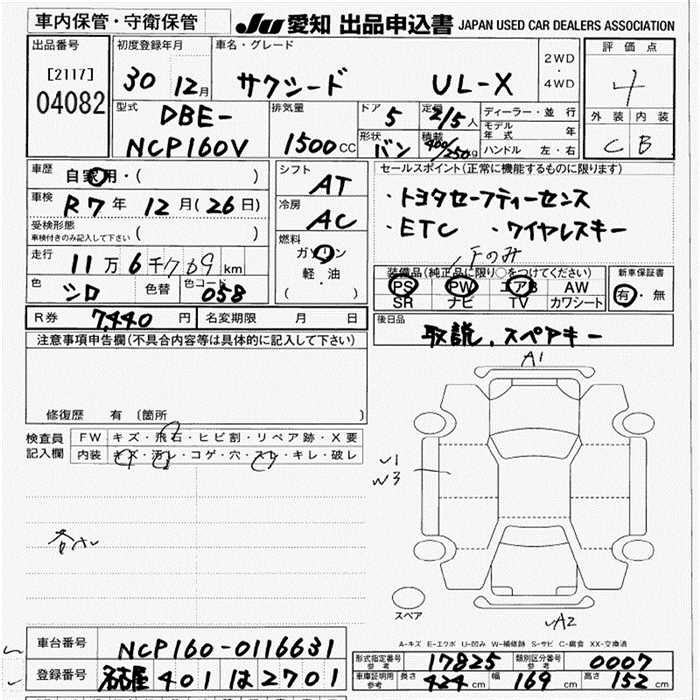 車内保管・守衛保管
JU 愛知 出品申込書 JAPAN USED CAR DEALERS ASSOCIATION
出品番号 [2117] 04082
初度登録年月 30 12月
車名・グレード サクシード UL-X
2WD・4WD
評価点 4
外装 C 内装 B
型式 DBE-NCP160V
排気量 1500cc
ドア 5
定員 2/5人
形状 バン
積載 400/250kg
ディーラー・並行
モデル年式 年
ハンドル 左・右
車歴 自家用・( )
車検 R7年 12月(26日)
受検形態 車検付きのみ記入して下さい ( )
走行 11万6千769km
色 シロ 色替 色コード 058
シフト AT
冷房 AC
燃料 ガソリン 軽・油 ( )
セールスポイント(正常に機能するものに限ります)
・トヨタセーフティーセンス
・ETC ・ワイヤレスキー
のみ
装備品(純正品に限り○をつけてください)
PS PW エアB AW
SR ナビ TV カワシート
新車保証書 有・無
R券 7,440円 名変期限 月 日
後日品 取説、スペアキー
注意事項申告欄(不具合内容等は具体的に記入して下さい)
修復歴 有 〔箇所 〕
検査員記入欄
FW キズ・飛石・ヒビ割・リペア跡・X要
内装 キズ・汚レ・コゲ・穴・スレ・キレ・破レ
A1
U1
W3
A2
スペア
A-キズ E-エクボ U-凹み W-補修跡 S-サビ C-腐食 XX-交換済
車台番号 NCP160-0116631
登録番号 名古屋 401 は 2701
形式指定番号 参考 17825 類別区分番号 参考 0007
車庫証明用 参考 長さ 424cm 幅 169cm 高さ 152cm